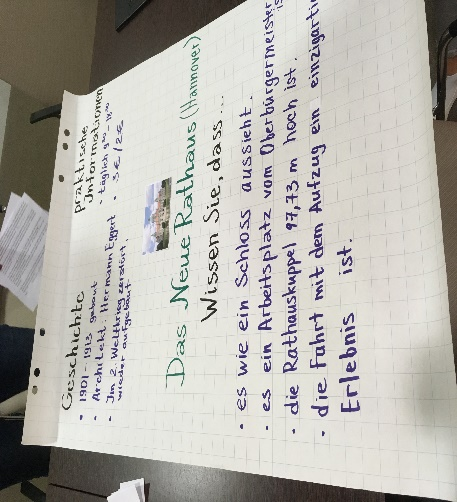 Geschichte
• 1901-1913 gebaut
• Architekt: Hermann Eggert
• Im 2. Weltkrieg zerstört,
wieder aufgebaut
praktische
Informationen
• täglich
• 3€/2€
Das Neue Rathaus (Hannover)
Wissen Sie, dass ...
• es wie ein Schloss aussieht.
• es ein Arbeitsplatz vom Oberbürgermeister
• die Rathauskuppel 97,73 m hoch ist.
• die Fahrt mit dem Aufzug ein
Erlebnis ist.